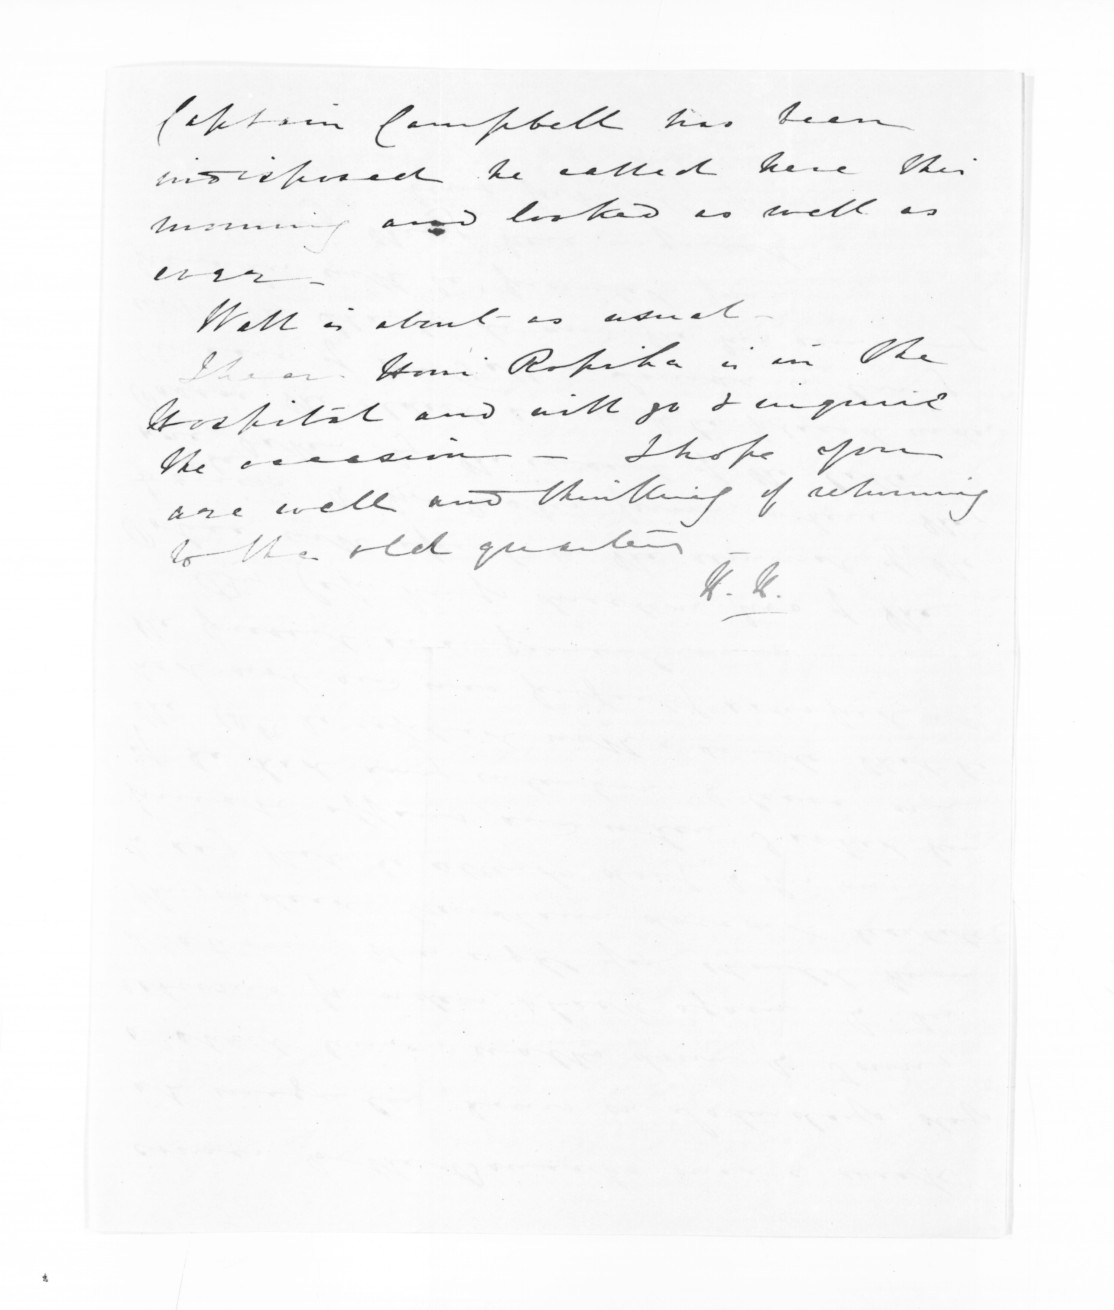 Captain Campbell has been
indisposed he called here this
morning and looked as well as
ever -
Watt is about as usual -
I hear Honi Ropiha is in the
Hospital and will go & inquire
the occasion - I hope you
are well and thinking of returning
to the old quarters -